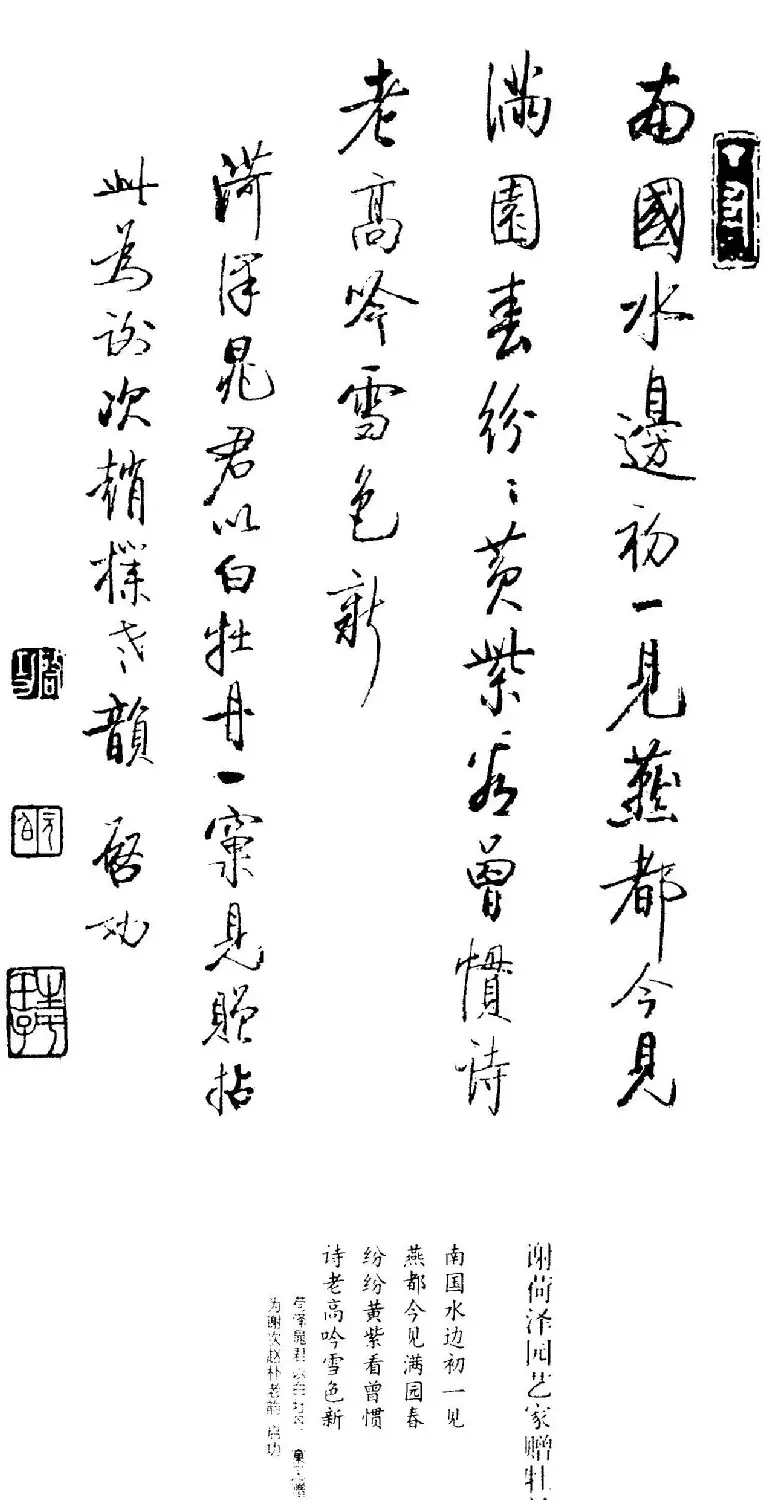 南國水邊初一見燕都今見
滿園春紛〻黄紫看曾慣詩
老高吟雪色新
菏澤晁君以白牡丹一窠見贈拈
此為谢次趙樸老韻 啓功
谢荷泽园艺家赠牡
南国水边初一见
燕都今见满园春
纷纷黄紫看曾惯
诗老高吟雪色新
为谢次赵朴老韵 启功